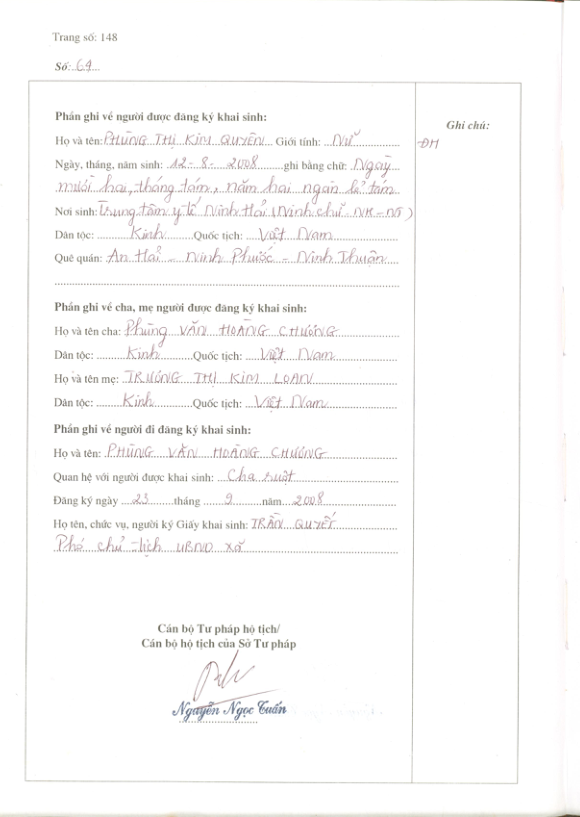 Trang số: 148
Số: 64
Phần ghi về người được đăng ký khai sinh:
Ghi chú:
Họ và tên: PHÙNG THỊ KIM QUYÊN Giới tính: Nữ
ĐH
Ngày, tháng, năm sinh: 12-8-2008 ghi bằng chữ: Ngày
mười hai, tháng tám, năm hai ngàn lẻ tám
Nơi sinh: Trung tâm y tế Ninh Hải (Ninh chữ - NH - NT)
Dân tộc: Kinh Quốc tịch: Việt Nam
Quê quán: An Hải - Ninh Phước - Ninh Thuận
Phần ghi về cha, mẹ người được đăng ký khai sinh:
Họ và tên cha: Phùng VĂN HOÀNG CHƯƠNG
Dân tộc: Kinh Quốc tịch: Việt Nam
Họ và tên mẹ: TRƯƠNG THỊ KIM LOAN
Dân tộc: Kinh Quốc tịch: Việt Nam
Phần ghi về người đi đăng ký khai sinh:
Họ và tên: PHÙNG VĂN HOÀNG CHƯƠNG
Quan hệ với người được khai sinh: Cha ruột
Đăng ký ngày 23 tháng 9 năm 2008
Họ tên, chức vụ, người ký Giấy khai sinh: TRẦN QUYẾT
Phó chủ tịch UBND xã
Cán bộ Tư pháp hộ tịch/
Cán bộ hộ tịch của Sở Tư pháp
Nguyễn Ngọc Tuấn